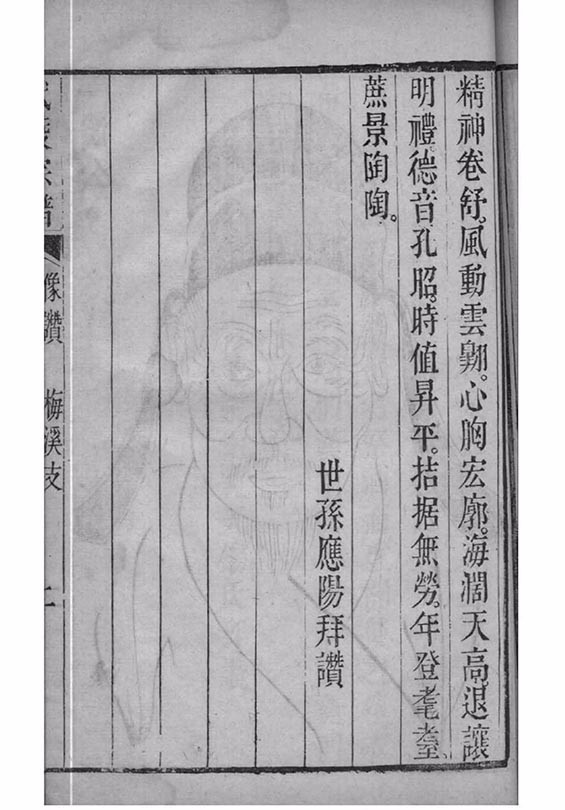 精神卷舒。風動雲翺。心胸宏廓。海濶天高。退讓
明禮。德音孔昭。時值昇平。拮据無勞。年登耄耋。
蔗景陶陶。
世孫應陽拜讚
宗譜
像讚 梅溪支